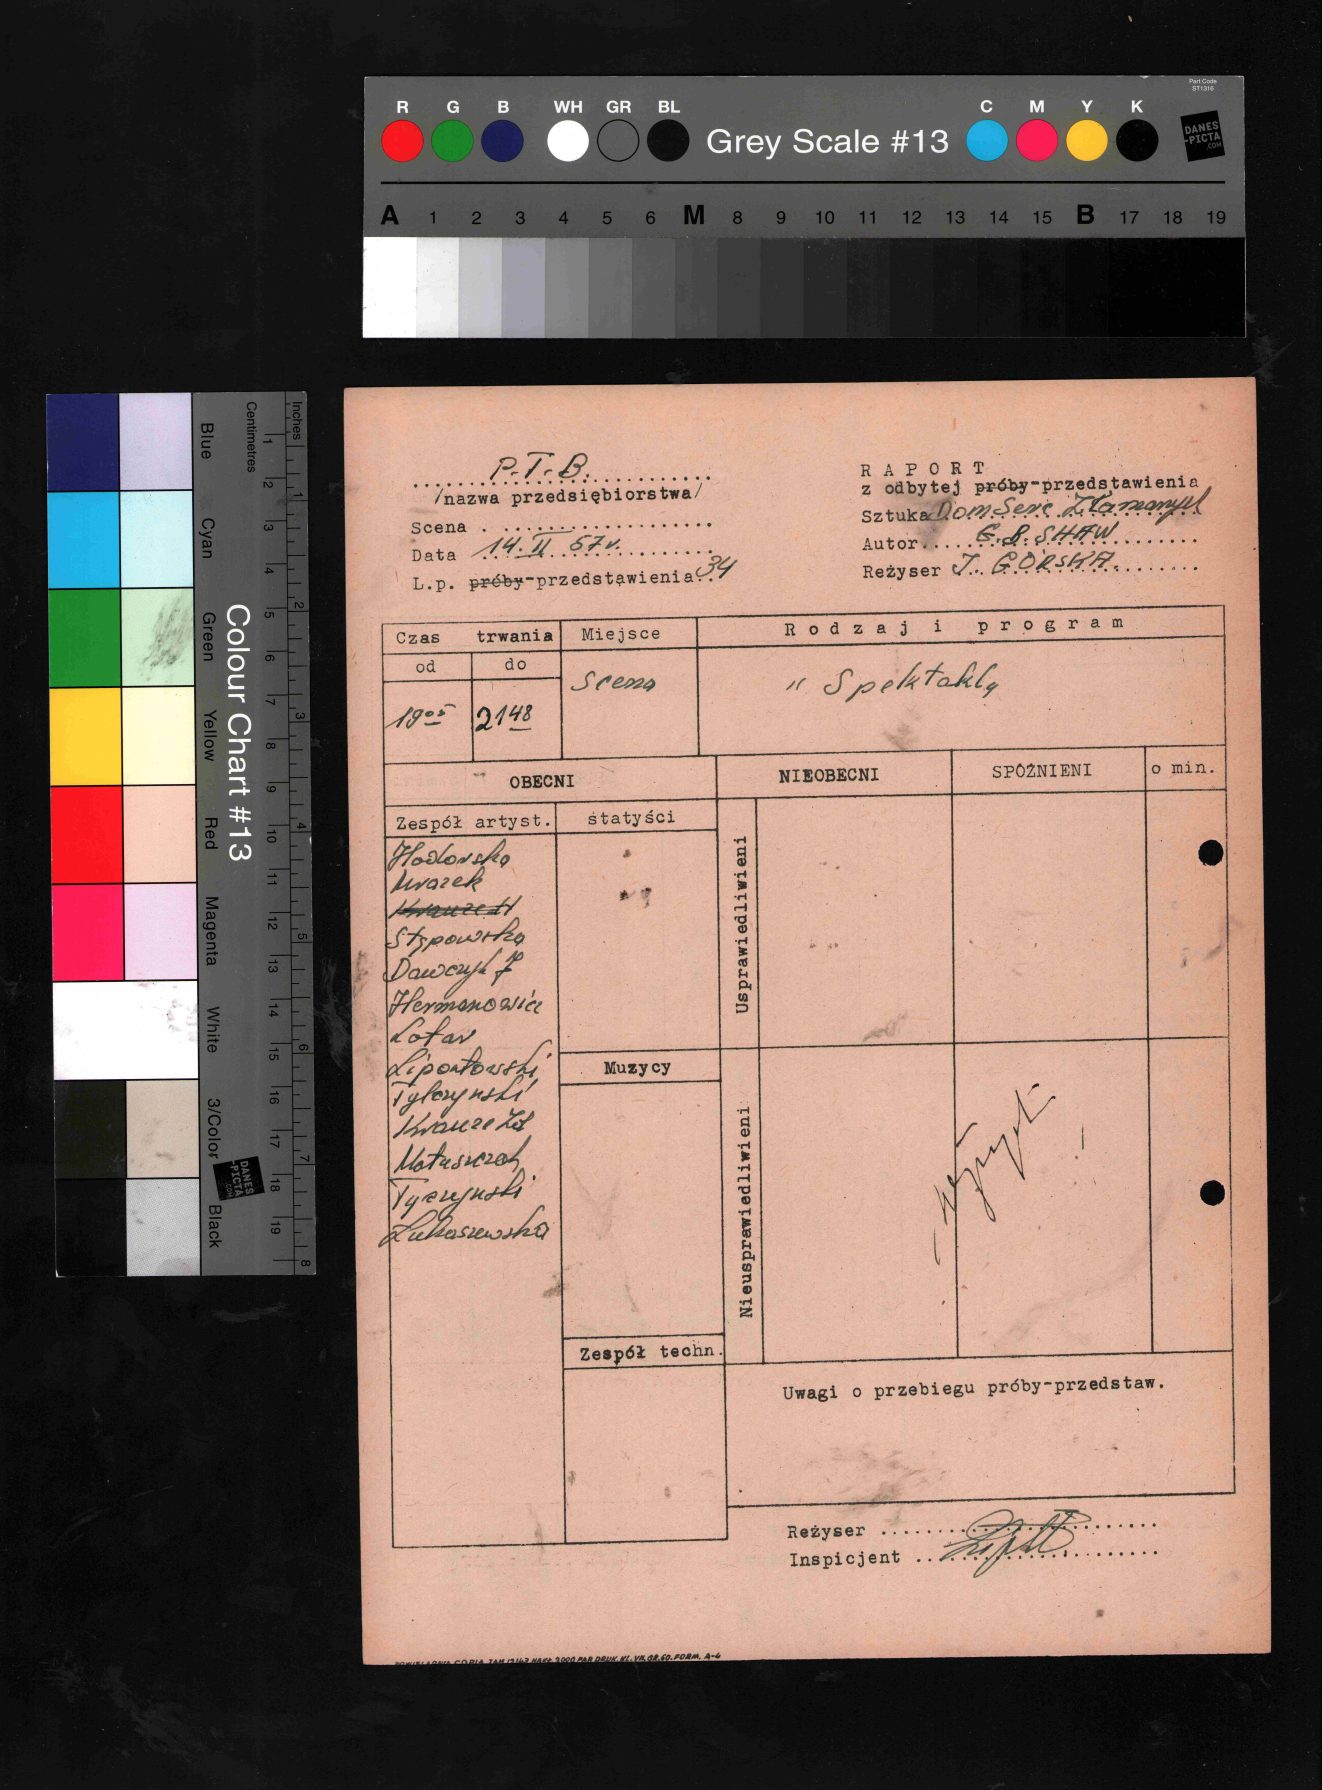 Part Code
ST1316
R G B WH GR BL Grey Scale #13 C M Y K
DANES
-PICTA
.COM
A 1 2 3 4 5 6 M 8 9 10 11 12 13 14 15 B 17 18 19
Colour Chart #13
Blue Cyan Green Yellow Red Magenta White 3/Color Black
Centimetres 1 2 3 4 5 6 7 8 9 10 11 12 13 14 15 16 17 18 19
Inches 1 2 3 4 5 6 7 8
DANES
-PICTA
.COM
P.T.B.
/nazwa przedsiębiorstwa/
Scena
Data 14.II 67r.
L.p. próby-przedstawienia 34
RAPORT
z odbytej próby-przedstawienia
Sztuka Dom Serc Złamanych
Autor G.B. SHAW
Reżyser J. GÓRSKA
Czas trwania Miejsce Rodzaj i program
od do
19 05 21 48 Scena " Spektakl"
OBECNI NIEOBECNI SPÓŹNIENI o min.
Zespół artyst. statyści
Usprawiedliwieni
Hodorska
Mrozek
Krauze
Stępowska
Dawczyk J
Hermanowicz
Lotar
Lipontowski
Tylczyński
Krauze Zd
Matuszczak
Tyczyński
Łukaszewska
Muzycy
Nieusprawiedliwieni
Zespół techn.
Uwagi o przebiegu próby-przedstaw.
Reżyser
Inspicjent